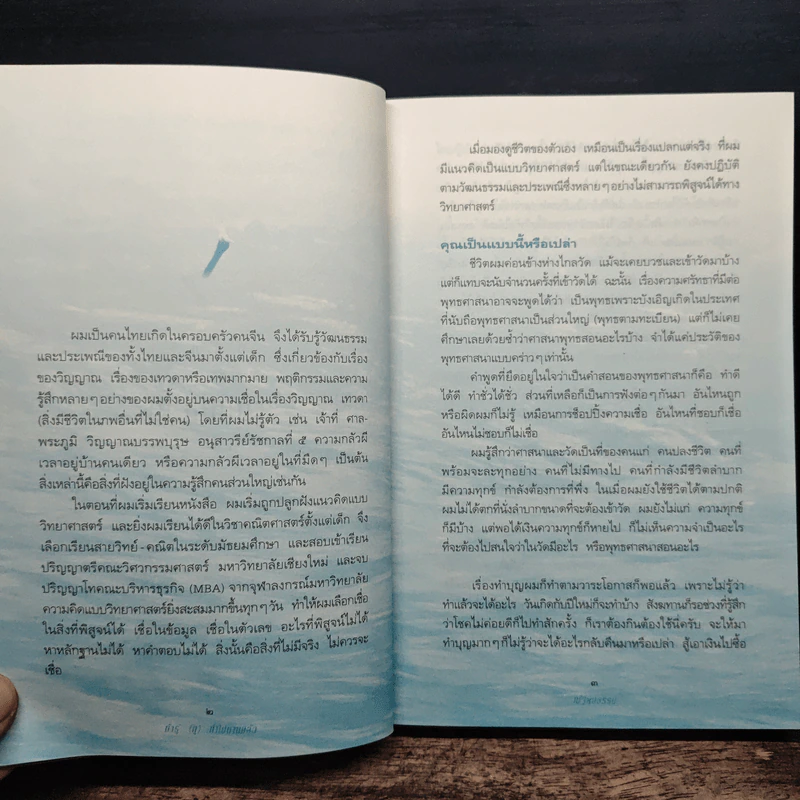 ผมเป็นคนไทยเกิดในครอบครัวคนจีน จึงได้รับรู้วัฒนธรรม
และประเพณีของทั้งไทยและจีนมาตั้งแต่เด็ก ซึ่งเกี่ยวข้องกับเรื่อง
ของวิญญาณ เรื่องของเทวดาหรือเทพมากมาย พฤติกรรมและความ
รู้สึกหลายๆอย่างของผมตั้งอยู่บนความเชื่อในเรื่องวิญญาณ เทวดา
(สิ่งมีชีวิตในภพอื่นที่ไม่ใช่คน) โดยที่ผมไม่รู้ตัว เช่น เจ้าที่ ศาล-
พระภูมิ วิญญาณบรรพบุรุษ อนุสาวรีย์รัชกาลที่ ๕ ความกลัวผี
เวลาอยู่บ้านคนเดียว หรือความกลัวผีเวลาอยู่ในที่มืดๆ เป็นต้น
สิ่งเหล่านี้คือสิ่งที่ฝังอยู่ในความรู้สึกคนส่วนใหญ่เช่นกัน
ในตอนที่ผมเริ่มเรียนหนังสือ ผมเริ่มถูกปลูกฝังแนวคิดแบบ
วิทยาศาสตร์ และยิ่งผมเรียนได้ดีในวิชาคณิตศาสตร์ตั้งแต่เด็ก จึง
เลือกเรียนสายวิทย์-คณิตในระดับมัธยมศึกษา และสอบเข้าเรียน
ปริญญาตรีคณะวิศวกรรมศาสตร์ มหาวิทยาลัยเชียงใหม่ และจบ
ปริญญาโทคณะบริหารธุรกิจ (MBA) จากจุฬาลงกรณ์มหาวิทยาลัย
ความคิดแบบวิทยาศาสตร์ยิ่งสะสมมากขึ้นทุกๆวัน ทำให้ผมเลือกเชื่อ
ในสิ่งที่พิสูจน์ได้ เชื่อในข้อมูล เชื่อในตัวเลข อะไรที่พิสูจน์ไม่ได้
หาหลักฐานไม่ได้ หาคำตอบไม่ได้ สิ่งนั้นคือสิ่งที่ไม่มีจริง ไม่ควรจะ
เชื่อ
๒
เมื่อมองดูชีวิตของตัวเอง เหมือนเป็นเรื่องแปลกแต่จริง ที่ผม
มีแนวคิดเป็นแบบวิทยาศาสตร์ แต่ในขณะเดียวกัน ยังคงปฏิบัติ
ตามวัฒนธรรมและประเพณีซึ่งหลายๆอย่างไม่สามารถพิสูจน์ได้ทาง
วิทยาศาสตร์
คุณเป็นแบบนี้หรือเปล่า
ชีวิตผมค่อนข้างห่างไกลวัด แม้จะเคยบวชและเข้าวัดมาบ้าง
แต่ก็แทบจะนับจำนวนครั้งที่เข้าวัดได้ ฉะนั้น เรื่องความศรัทธาที่มีต่อ
พุทธศาสนาอาจจะพูดได้ว่า เป็นพุทธเพราะบังเอิญเกิดในประเทศ
ที่นับถือพุทธศาสนาเป็นส่วนใหญ่ (พุทธตามทะเบียน) แต่ก็ไม่เคย
ศึกษาเลยด้วยซ้ำว่าศาสนาพุทธสอนอะไรบ้าง จำได้แค่ประวัติของ
พุทธศาสนาแบบคร่าวๆเท่านั้น
คำพูดที่ยึดอยู่ในใจว่าเป็นคำสอนของพุทธศาสนาก็คือ ทำดี
ได้ดี ทำชั่วได้ชั่ว ส่วนที่เหลือก็เป็นการฟังต่อๆกันมา อันไหนถูก
หรือผิดผมก็ไม่รู้ เหมือนการช็อปปิ้งความเชื่อ อันไหนที่ชอบก็เชื่อ
อันไหนไม่ชอบก็ไม่เชื่อ
ผมรู้สึกว่าศาสนาและวัดเป็นที่ของคนแก่ คนปลงชีวิต คนที่
พร้อมจะละทุกอย่าง คนที่ไม่มีทางไป คนที่กำลังมีชีวิตลำบาก
มีความทุกข์ กำลังต้องการที่พึ่ง ในเมื่อผมยังใช้ชีวิตได้ตามปกติ
ผมไม่ได้ตกที่นั่งลำบากขนาดที่จะต้องเข้าวัด ผมยังไม่แก่ ความทุกข์
ก็มีบ้าง แต่พอได้เงินความทุกข์ก็หายไป ก็ไม่เห็นความจำเป็นอะไร
ที่จะต้องไปสนใจว่าในวัดมีอะไร หรือพุทธศาสนาสอนอะไร
เรื่องทำบุญผมก็ทำตามวาระโอกาสก็พอแล้ว เพราะไม่รู้ว่า
ทำแล้วจะได้อะไร วันเกิดกับปีใหม่ก็จะทำบ้าง สังฆทานก็รอช่วงที่รู้สึก
ว่าโชคไม่ค่อยดีก็ไปทำสักครั้ง ก็เราต้องกินต้องใช้นี่ครับ จะให้มา
ทำบุญมากๆก็ไม่รู้ว่าจะได้อะไรกลับคืนมาหรือเปล่า สู้เอาเงินไปซื้อ
๓